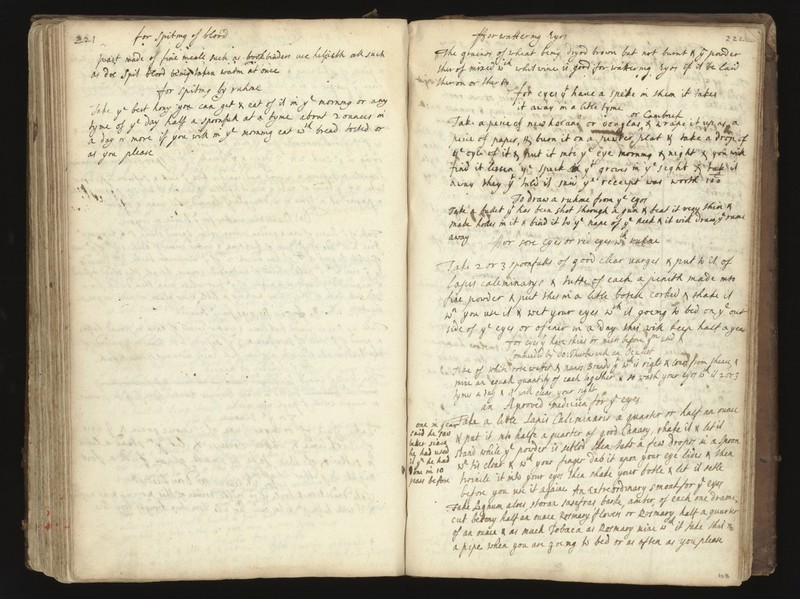 221
for Spitting of blood
past made of fine meale such as bookbinders use helpeth all such
as doe Spit blood being taken warm at once
for Spiting by ruhme
Take ye best hony you can get & eat of it in ye morning or any
tyme of ye day half a sponfull at a tyme about 2 ounces in
a day or more if you will in ye morning eat wth bread tosted or
as you please
222
ffor wattering Eyes
The graines of wheat being dryed brown but not burnt & ye powder
therof mixed wth whit wine is good for wattering Eyes if it be laid
theron or therto
for eyes yt have a in them it takes
it away in a litle tyme
or Cambrick
Take a peice of new holand or douglas & wrape it upon a
peice of paper, & burn it on a pewter pleat & take a drop of
ye oyle of it & put it into ye eye morning & night & you will
find it lessen ye speck yt grows in ye sight & take it
away they yt told it said ye receipt was worth 100
To draw a ruhme from ye eyes
Take a bulet yt has been shot through a gun & beat it very thin &
make holes in it & bind it to ye nape of ye neck & it will draw ye rume
away
ffor sore eyes or red eyes wth ruhme
Take 2 or 3 sponfulls of good clear & put to it of
lapis caleminarys & tutte of each a penith made into
fine powder & put this in a litle botell corked & shake it
wn you use it & wet your eyes wth it going to bed on ye out
side of ye eyes or ofener in a day this will keep half a year
for eyes yt have skins or mists before ym and
an Oculist
Take of whitt rose watter & nants Brandy yt is right & from &
mixe an equall quantity of each together & so wash your eyes wth it 2 or 3
tymes a day & it will clear your sight
an Aproved medicien for ye eyes
one in year
said he saw
beter since
he had used
it yn he had
done in 10
years before
Take a litle Lapis Caleminaris a quarter or half an ounce
& put it into half a quarter of good Canary, shake it & let it
stand while ye powder is setled then take a few drops in a spoon
wn tis clear & wth your finger dab it upon your eye lides & then
twinkle it into your eyes then shake your botle & let it setle
before you use it againe An Extraordinary smoak for ye eyes
Take Lignum aloes, storax sasafras barke, amber, of each one drame,
cut betony half an ounce Rosmary flowers or Rosmary, half a quarter
of an ounce & as much Tobaca as Rosmary mixe wth it take this in
a pipe when you are going to bed or as often as you please